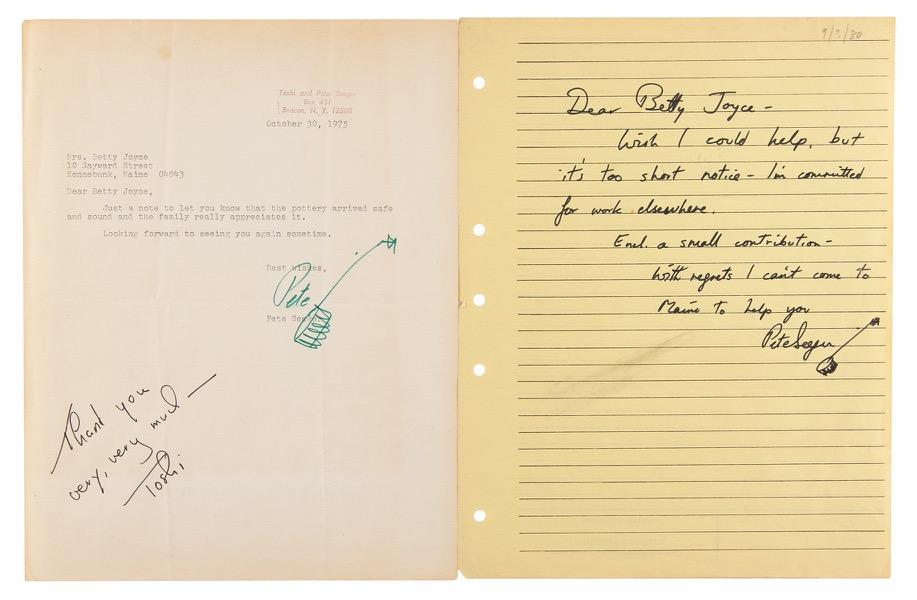 Toshi and Peter Seeger
Box 431
Beacon, N. Y. 12508
October 30, 1975
Mrs. Betty Joyce
10 Sayward Street
Kennebunk, Maine 04043
Dear Betty Joyce,
Just a note to let you know that the pottery arrived safe
and sound and the family really appreciates it.
Looking forward to seeing you again sometime.
Best wishes,
Pete
Pete Seeger
Thank you
very, very much —
Toshi
9/ /80
Dear Betty Joyce -
Wish I could help, but
it's too short notice - I'm committed
for work elsewhere.
Encl. a small contribution -
With regrets I can't come to
Maine to help you
Pete Seeger